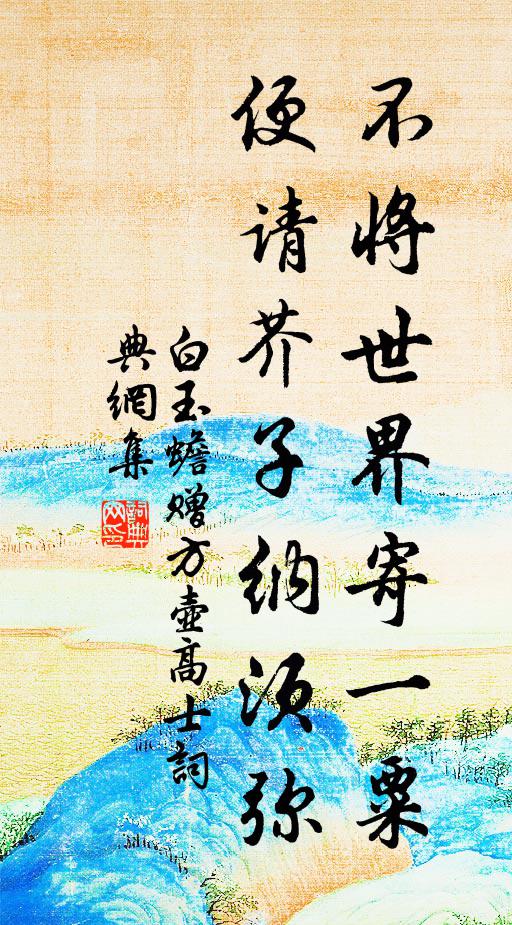 不将世界寄一粟
便请芥子纳须弥
白玉蟾赠方壶高士詞
典網集
詞典网印